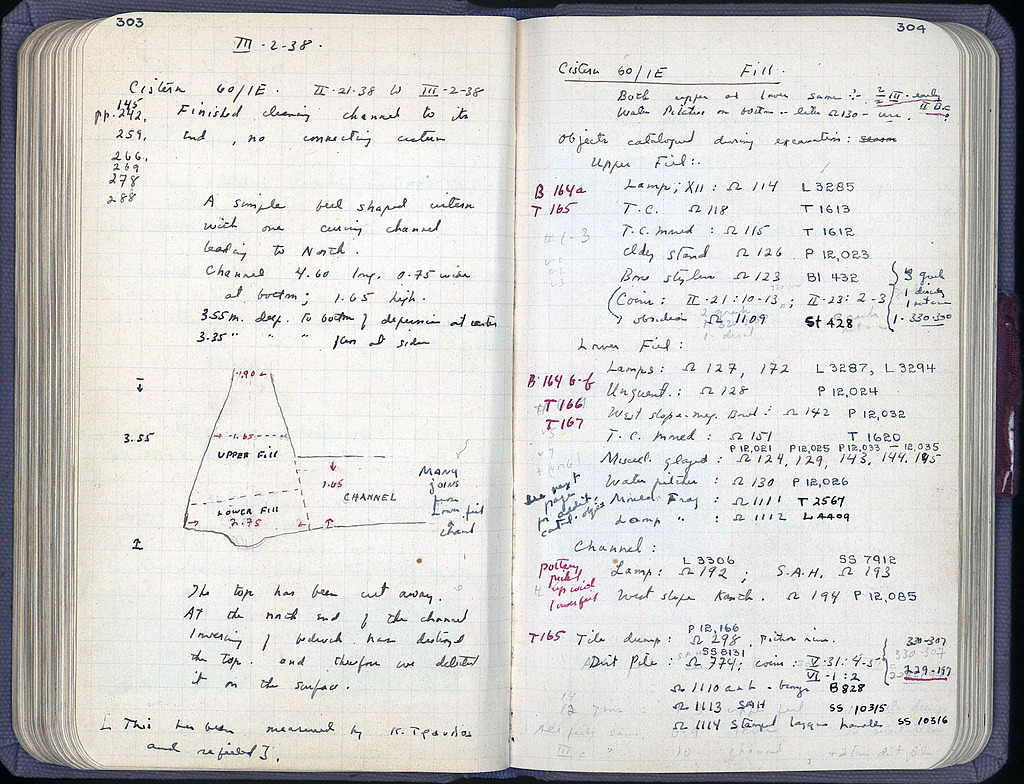 303
III·2-38.
Cistern 60/1E. II·21-38 to III-2-38
145
pp. 242,
259,
266,
269
278
288
Finished cleaning channel to its
end, no connecting cistern
A simple bell shaped cistern
with one curving channel
leading to North.
Channel 4.60 long, 0.75 wide
at bottom; 1.65 high.
3.55 m. deep. to bottom of depression at center
3.35 " " " floor at sides
.90
3.55
1.65
UPPER FILL
1.65
CHANNEL
LOWER FILL
2.75
MANY
JOINS
from
Lower fill
&
chanl
The top has been cut away.
At the north end of the channel
lowering of bedrock has destroyed
the top. and therefore we deleted
it on the surface.
[ This has been measured by K. Tgoudas
and refilled ].
304
Cistern 60/1E Fill.
Both upper and lower same :-
Water Pitcher on bottom - like Ω130 -
Objects catalogued during excavation:
Upper Fill:
B 164a
T 165
Lamp; XII: Ω 114 L 3285
T.C. Ω 118 T 1613
T.C. mould: Ω 115 T 1612
stand Ω 126 P 12,023
Bone stylus Ω 123 BI 432
Coins: II-21: 10-13; II-23: 2-3
1-330-330
obsidian Ω 1109 St 428
Lower Fill:
B 164 b-f
T 166
T 167
Lamps: Ω 127, 172 L 3287, L 3294
Unguent.: Ω 128 P 12,024
West slope-meg. Bowl: Ω 142 P 12,032
T.C. mould: Ω 151 T 1620
P 12,021 P 12,025 P 12,033 - 12,035
Miscel. glazed: Ω 124, 129, 143, 144, 145
Water pitcher: Ω 130 P 12,026
Mould Frag: Ω 1111 T 2567
Lamp " : Ω 1112 L 4409
see next
page
for addit.
cat'd. objec
Channel:
L 3306 SS 7912
Lamp: Ω 192; S.A.H. Ω 193
West slope Kanth. Ω 194 P 12,085
pottery
mixed
up with
lower fill
P 12,166
T165 Tile dump: Ω 298, pithos rim.
SS 8131
Dirt Pile: Ω 774; coins: V·31: 4-5
VI-1: 2
330-307
229-197
Ω 1110 B 828
Ω 1113 SAH SS 10315
Ω 1114 Stamped lagynos handle SS 10316